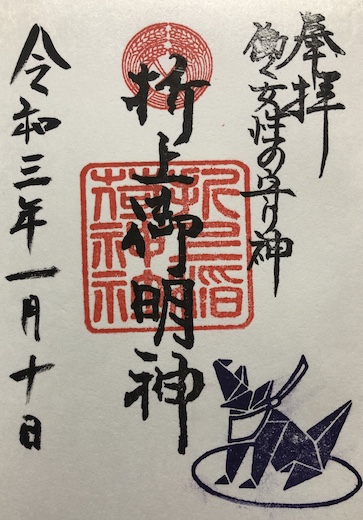 奉拝
働く女性の守り神
折上御明神
折上稲
荷神社
令和三年一月十日